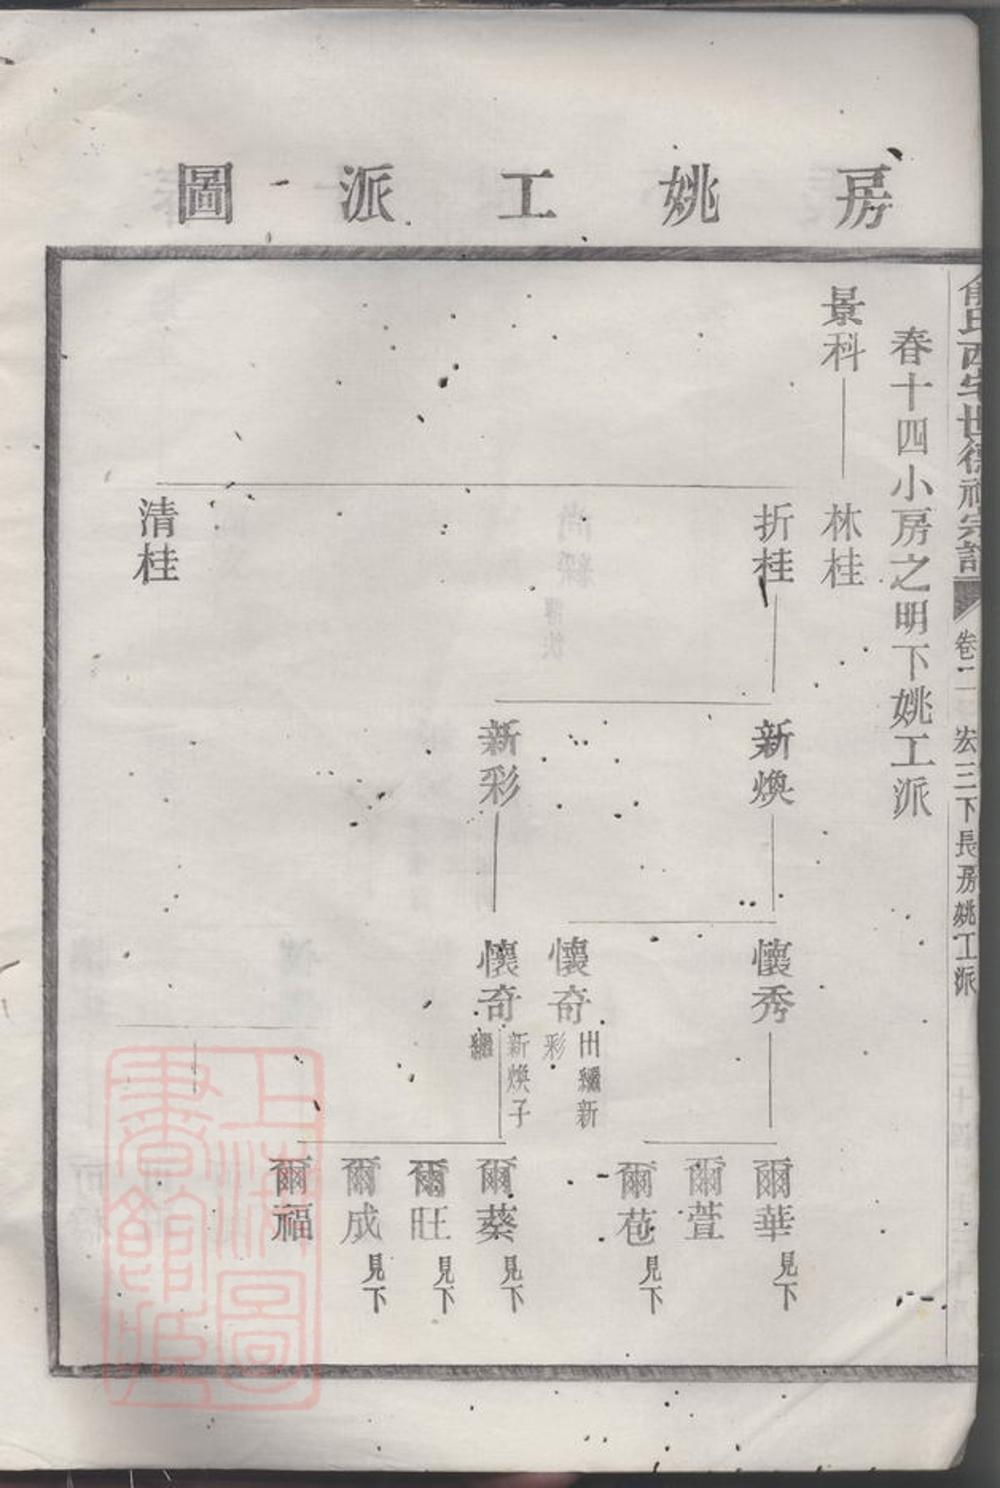 房姚工派圖
俞氏西宅世德祠宗譜 卷二 宏三下長房姚工派
春十四小房之明下姚工派
景科
林桂
折桂
清桂
新煥
新彩
懷秀
懷奇 出繼新彩
懷奇 新煥子繼
爾華 見下
爾萱
爾苞 見下
爾葵 見下
爾旺 見下
爾成 見下
爾福
上海圖書館藏